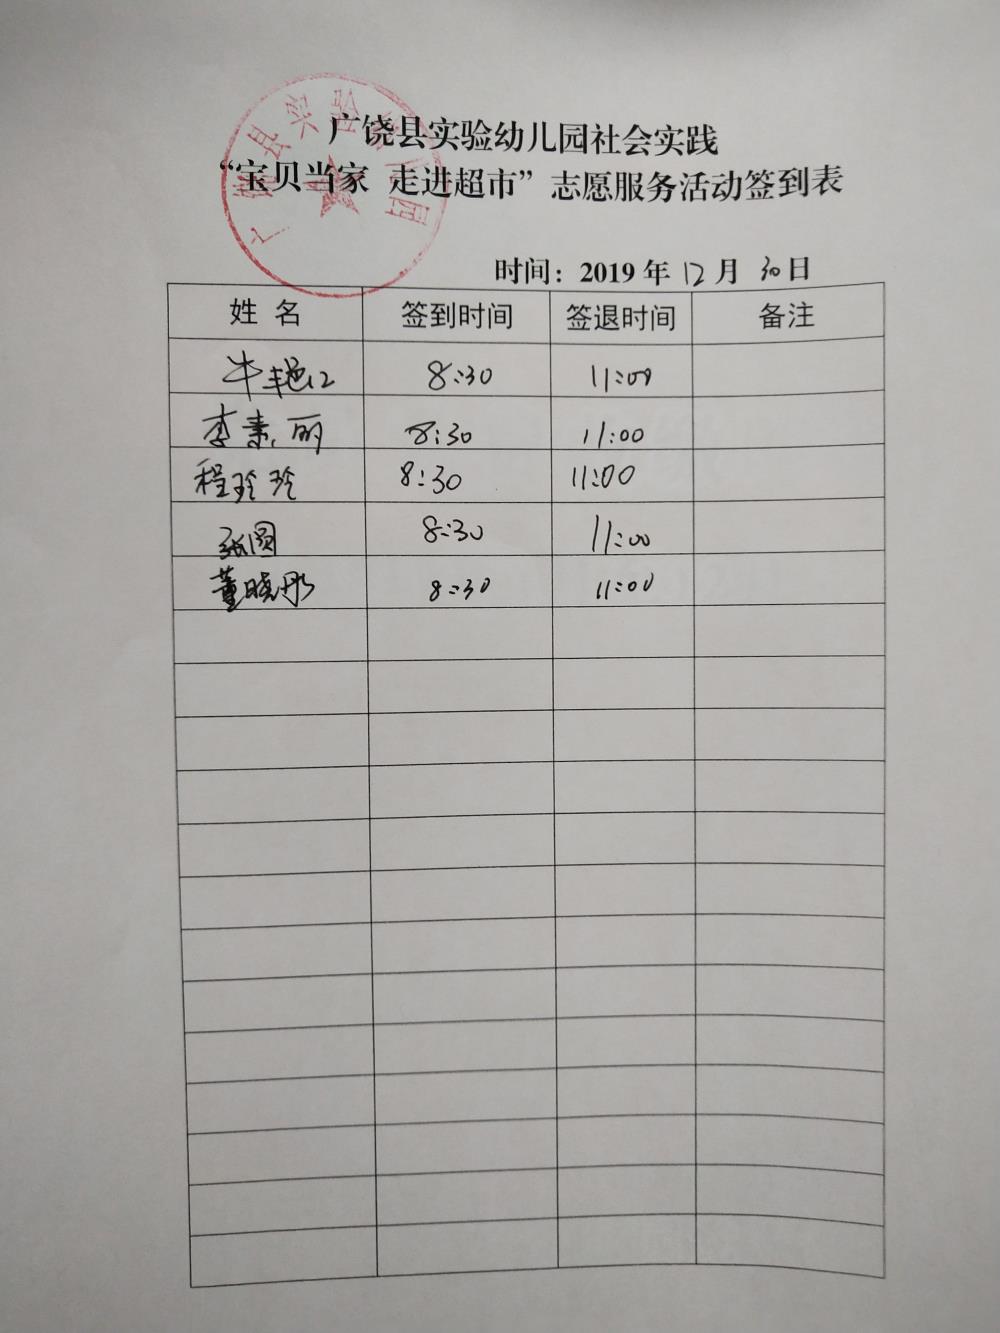 广饶县实验幼儿园
广饶县实验幼儿园社会实践
“宝贝当家 走进超市”志愿服务活动签到表
时间：2019年12月30日
姓 名 签到时间 签退时间 备注
牛艳红 8:30 11:00
李素丽 8:30 11:00
程玲玲 8:30 11:00
张圆 8:30 11:00
董晓彤 8:30 11:00